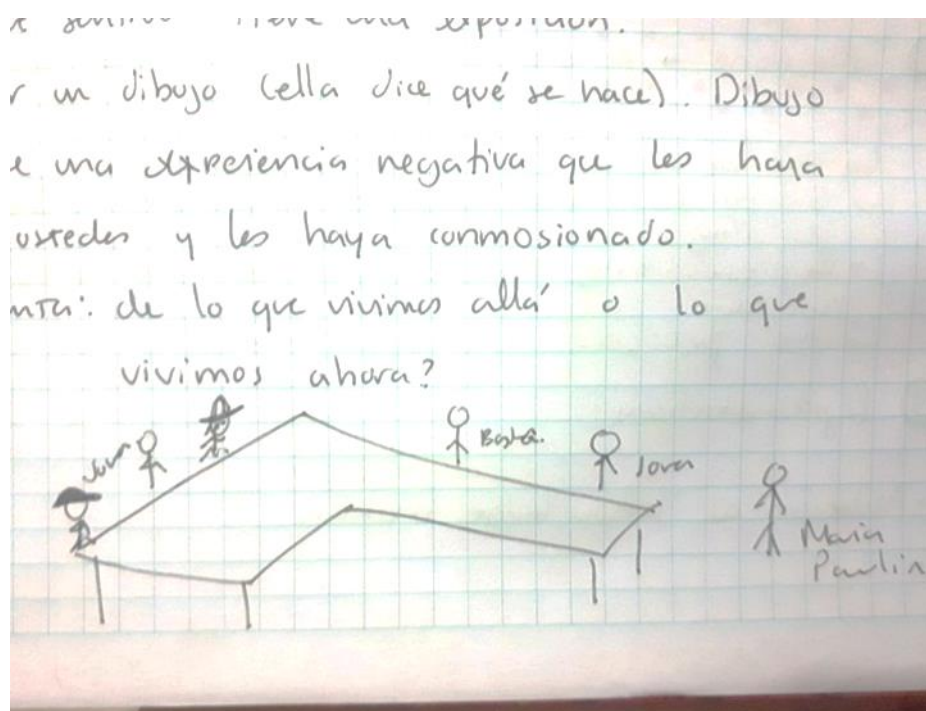 tiene una exposición.
r un dibujo (ella dice qué se hace). Dibujo
e una expreiencia negativa que les haya
ustedes y les haya conmosionado.
nta: de lo que vivimos allá o lo que
vivimos ahora?
Joven
María
Paulin